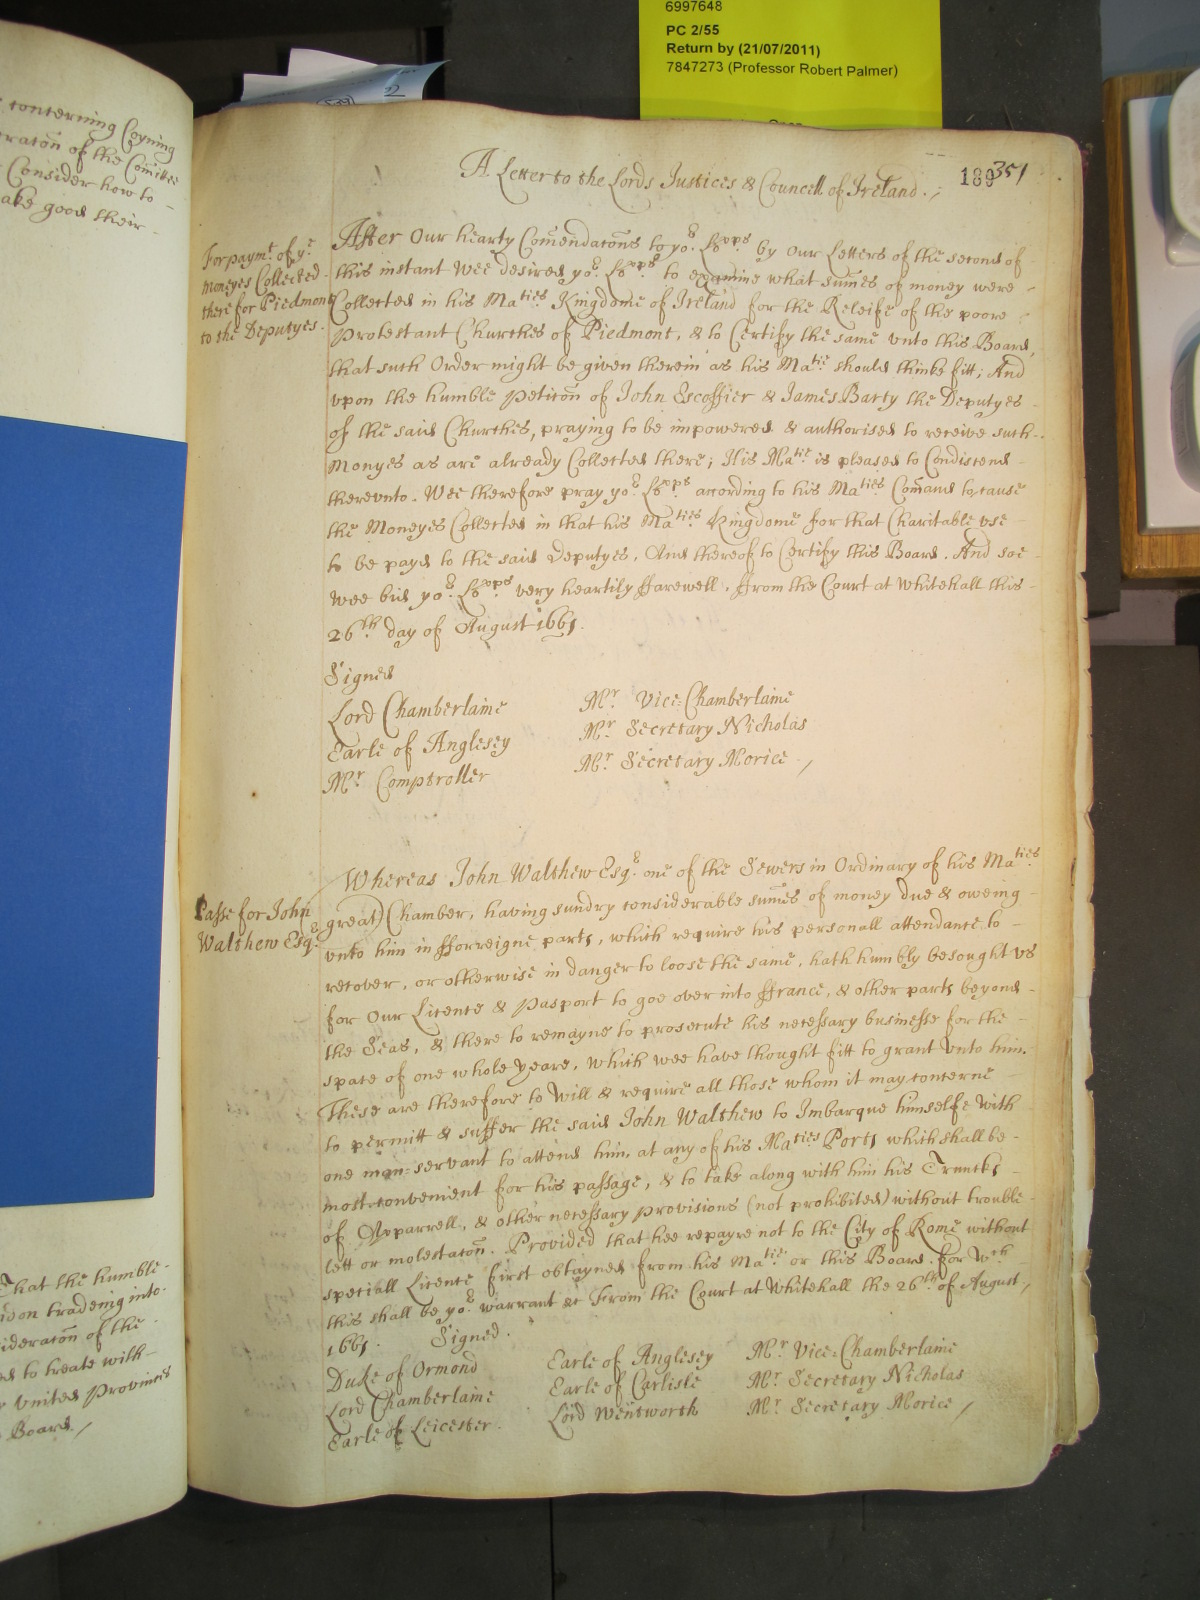 6997648
PC 2/55
Return by (21/07/2011)
7847273 (Professor Robert Palmer)
concerning Coyning
of the Com̃ittee
Consider how to
ake good their
That the humble
tradeing into
ideratõn of the
ed to treate with
United Provinces
Board /
189 351
A Letter to the Lords Justices & Councell of Ireland.
For paymt. of ye
moneyes Collected
there for Piedmont
to the Deputyes.
After Our hearty Com̃endatõns to yor. Lopps by Our Letters of the second of
this instant Wee desired yor. Lopps to examine what sum̃es of money were
Collected in his Maties Kingdome of Ireland for the Releife of the poore
Protestant Churches of Piedmont, & to Certify the same vnto this Board,
that such Order might be given therein as his Matie should thinke fitt; And
vpon the humble Petitõn of John Escoffier & James Barty the Deputyes
of the said Churches, praying to be impowered & authorised to receive such
Monyes as are already Collected there; His Matie is pleased to Condiscend
therevnto. Wee therefore pray yor. Lopps according to his Maties Com̃and to cause
the Moneyes Collected in that his Maties Kingdome for that Charitable vse
to be payd to the said Deputyes, And thereof to Certify this Board. And soe
wee bid yor. Lopps very heartily ffarewell, ffrom the Court at Whitehall this
26th. day of August 1661.
Signed
Lord Chamberlaine
Mr. Vice-Chamberlaine
Earle of Anglesey
Mr. Secretary Nicholas
Mr. Comptroller
Mr. Secretary Morice /
Passe for John
Walthew Esqr.
Whereas John Walthew Esqr. one of the Sewers in Ordinary of his Maties
great Chamber, having sundry considerable sum̃es of money due & oweing
vnto him in fforreigne parts, which require his personall attendance to
recover, or otherwise in danger to loose the same, hath humbly besought vs
for Our Licence & Pasport to goe over into ffrance, & other parts beyond
the Seas, & there to remayne to prosecute his necessary businesse for the
space of one whole yeare, Which wee have thought fitt to grant vnto him.
These are therefore to Will & require all those whom it may concerne
to permitt & suffer the said John Walthew to Imbarque himselfe with
one man-servant to attend him, at any of his Maties Ports which shall be
most convenient for his passage, & to take along with him his Trunks
of Apparrell, & other necessary provisions (not prohibited) without trouble
lett or molestatõn. Provided that hee repayre not to the City of Rome without
speciall Licence first obtayned from his Matie or this Board. for Wch
this shall be yor. warrant &c From the Court at Whitehall the 26th of August,
1661. Signed.
Duke of Ormond
Earle of Anglesey
Mr. Vice-Chamberlaine
Lord Chamberlaine
Earle of Carlisle
Mr. Secretary Nicholas
Earle of Leicester.
Lord Wentworth
Mr. Secretary Morice /